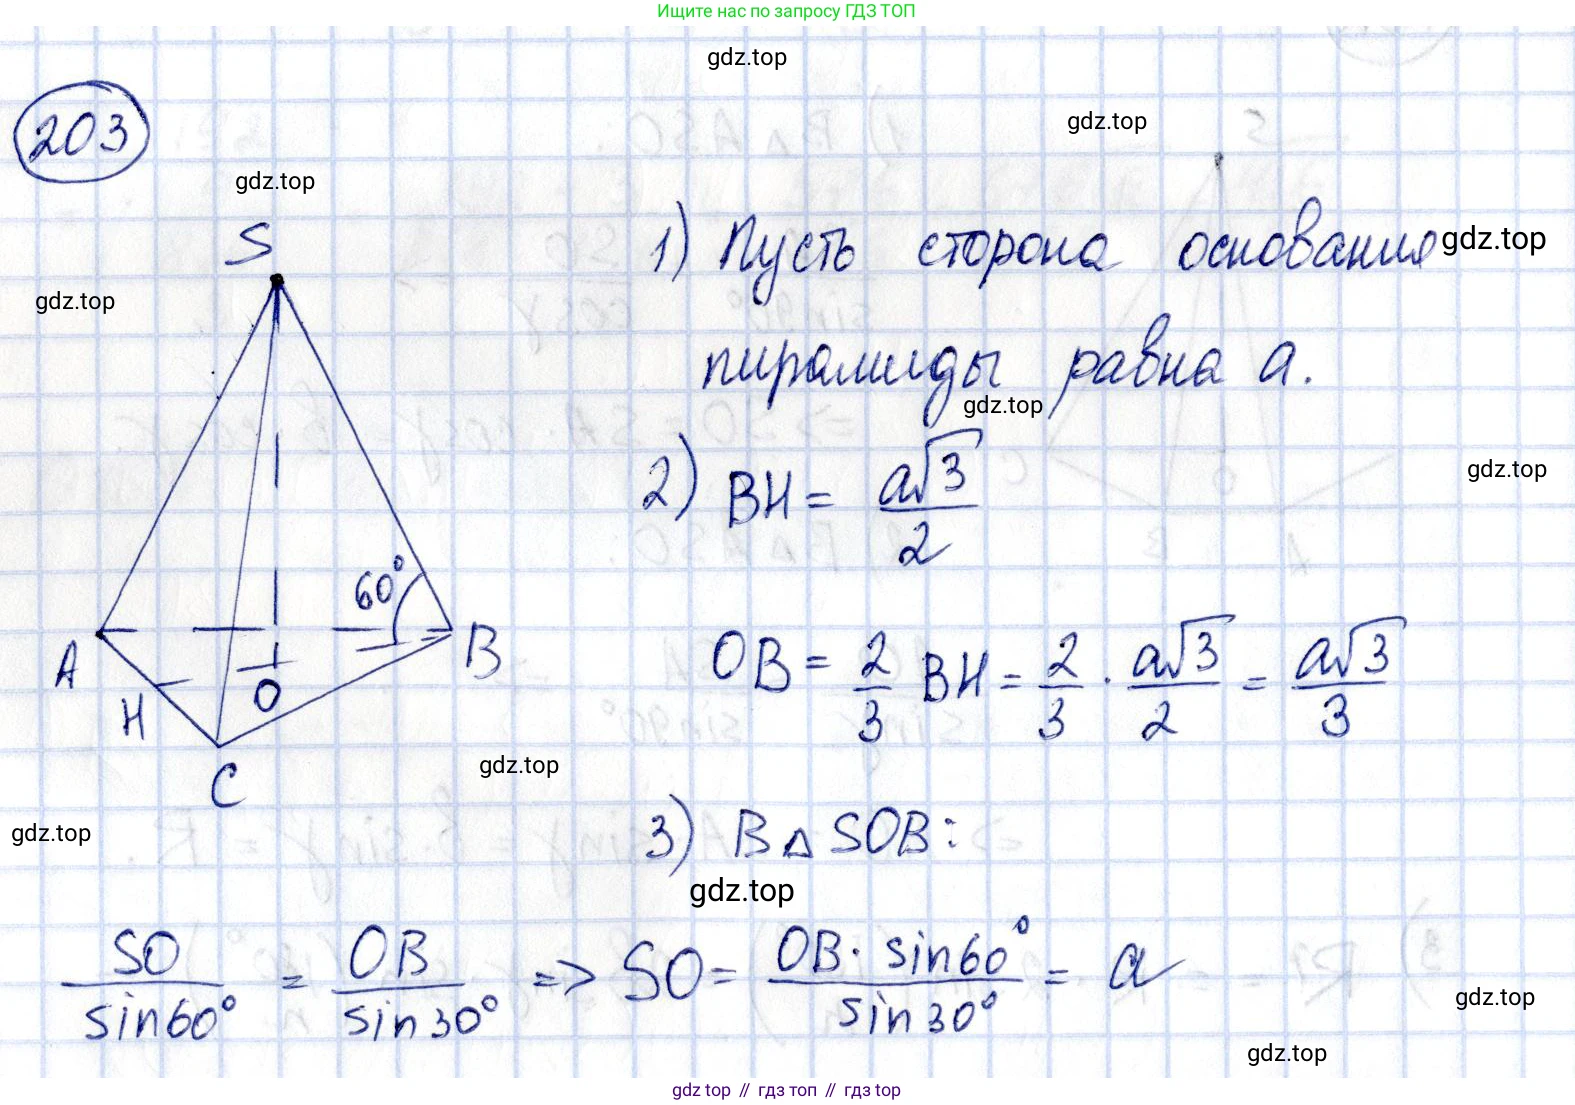 Ищите нас по запросу ГДЗ ТОП
gdz.top
203
gdz.top
gdz.top
S
1) Пусть сторона основания
gdz.top
gdz.top
пирамиды равна a.
gdz.top
2) BH = a√3/2
gdz.top
60°
A
B
H
O
C
OB = 2/3 BH = 2/3 · a√3/2 = a√3/3
gdz.top
gdz.top
3) В △ SOB:
gdz.top
SO/sin60° = OB/sin30° => SO = OB · sin60°/sin30° = a
gdz.top
gdz.top
gdz top // гдз топ // гдз top